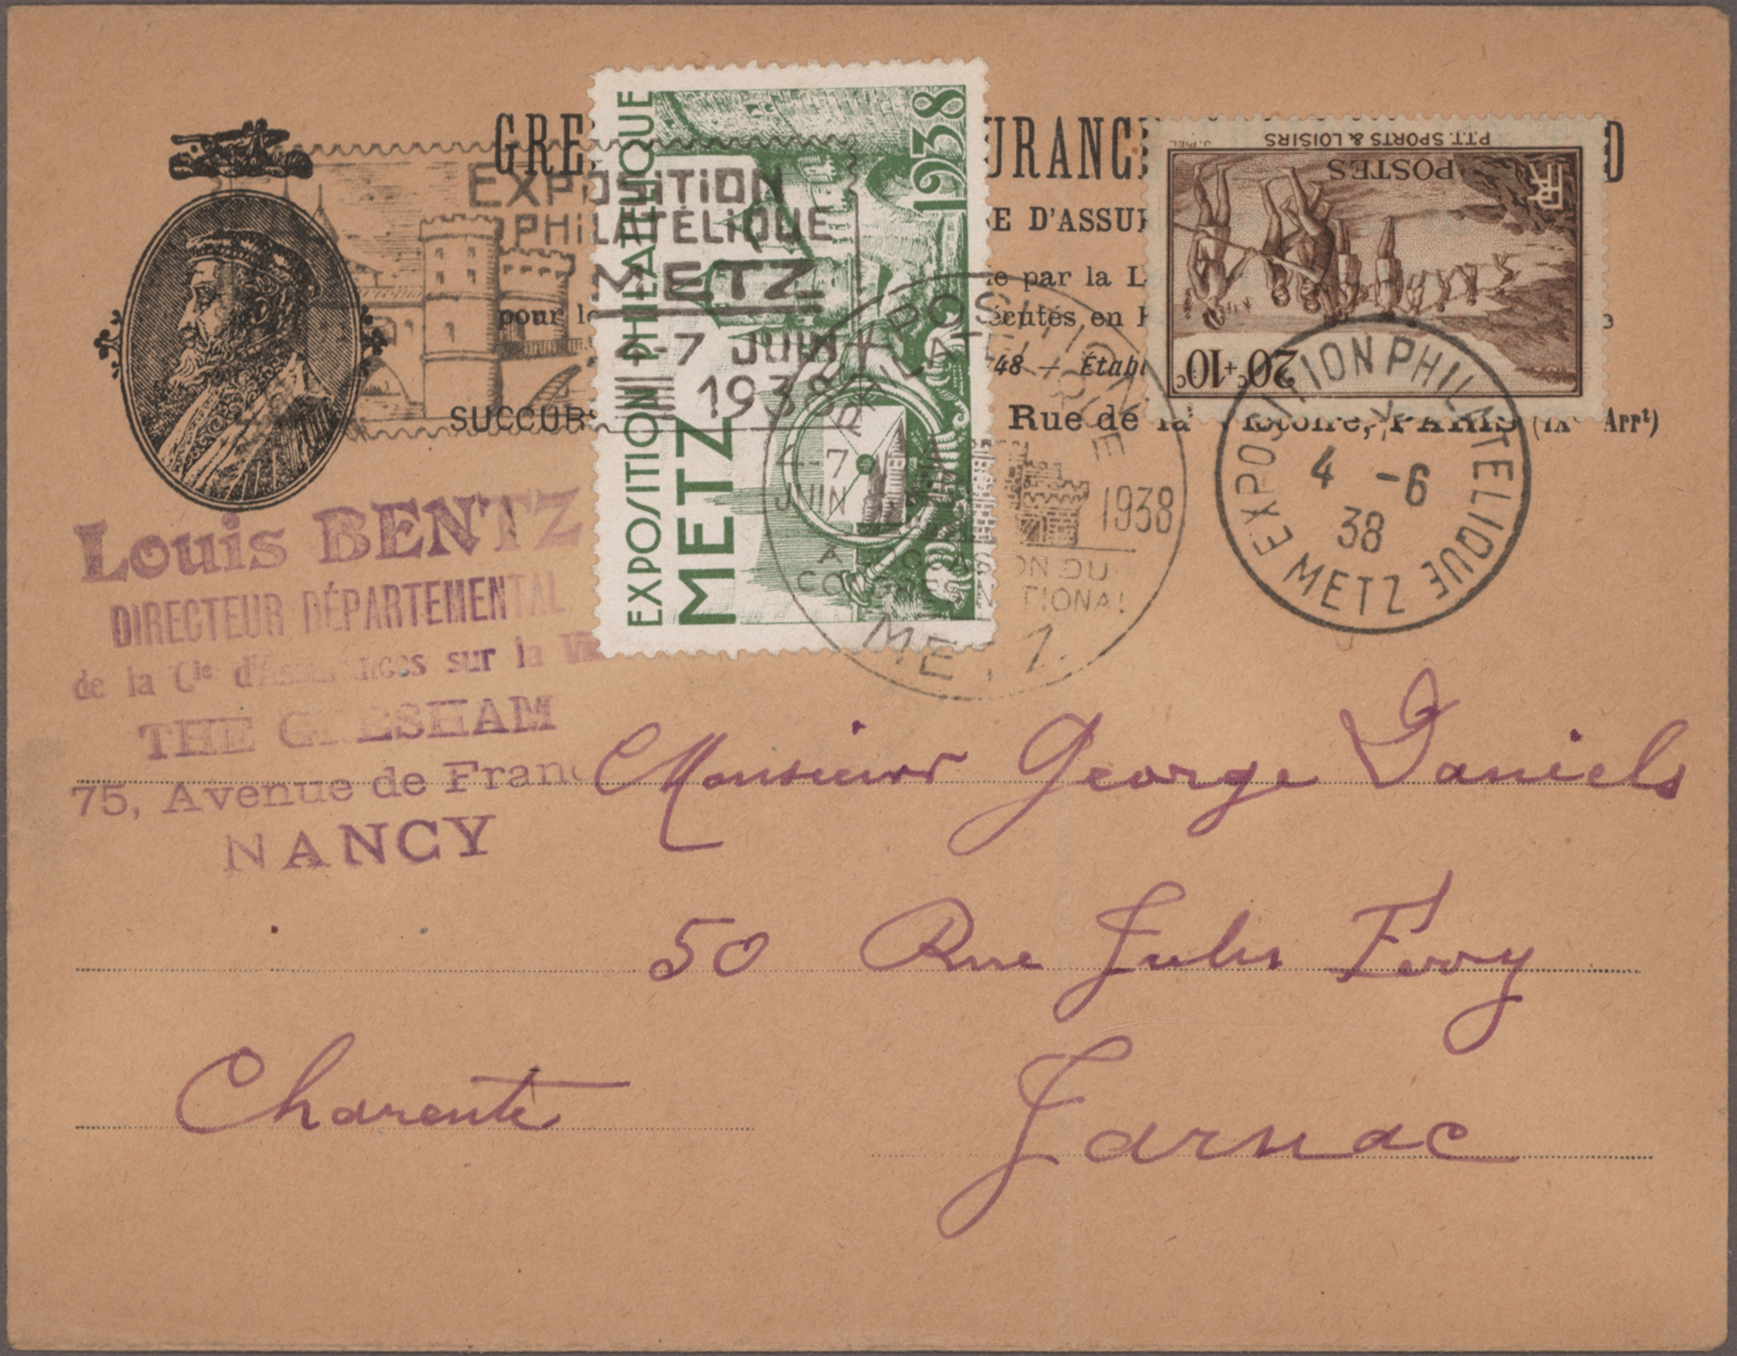 GRE URANC D
E D'ASSU
pour l e par la L
écutés en
48 — Établ
SUCCUR Rue de la Victoire, PARIS (IXe Arrt)
EXPOSITION
PHILATÉLIQUE
METZ
4-7 JUIN
1938
EXPOSITION PHILATELIQUE
METZ
1938
4-7
JUIN
1938
METZ
J. PIEL
P.T.T. SPORTS & LOISIRS
POSTES
RF
20c+10c
EXPOSITION PHILATELIQUE
4 -6
38
METZ
Louis BENTZ
DIRECTEUR DÉPARTEMENTAL
de la Cie d'Assurances sur la Vie
THE GRESHAM
75, Avenue de Franc
NANCY
Monsieur George Daniels
50 Rue Jules Ferry
Charente Jarnac